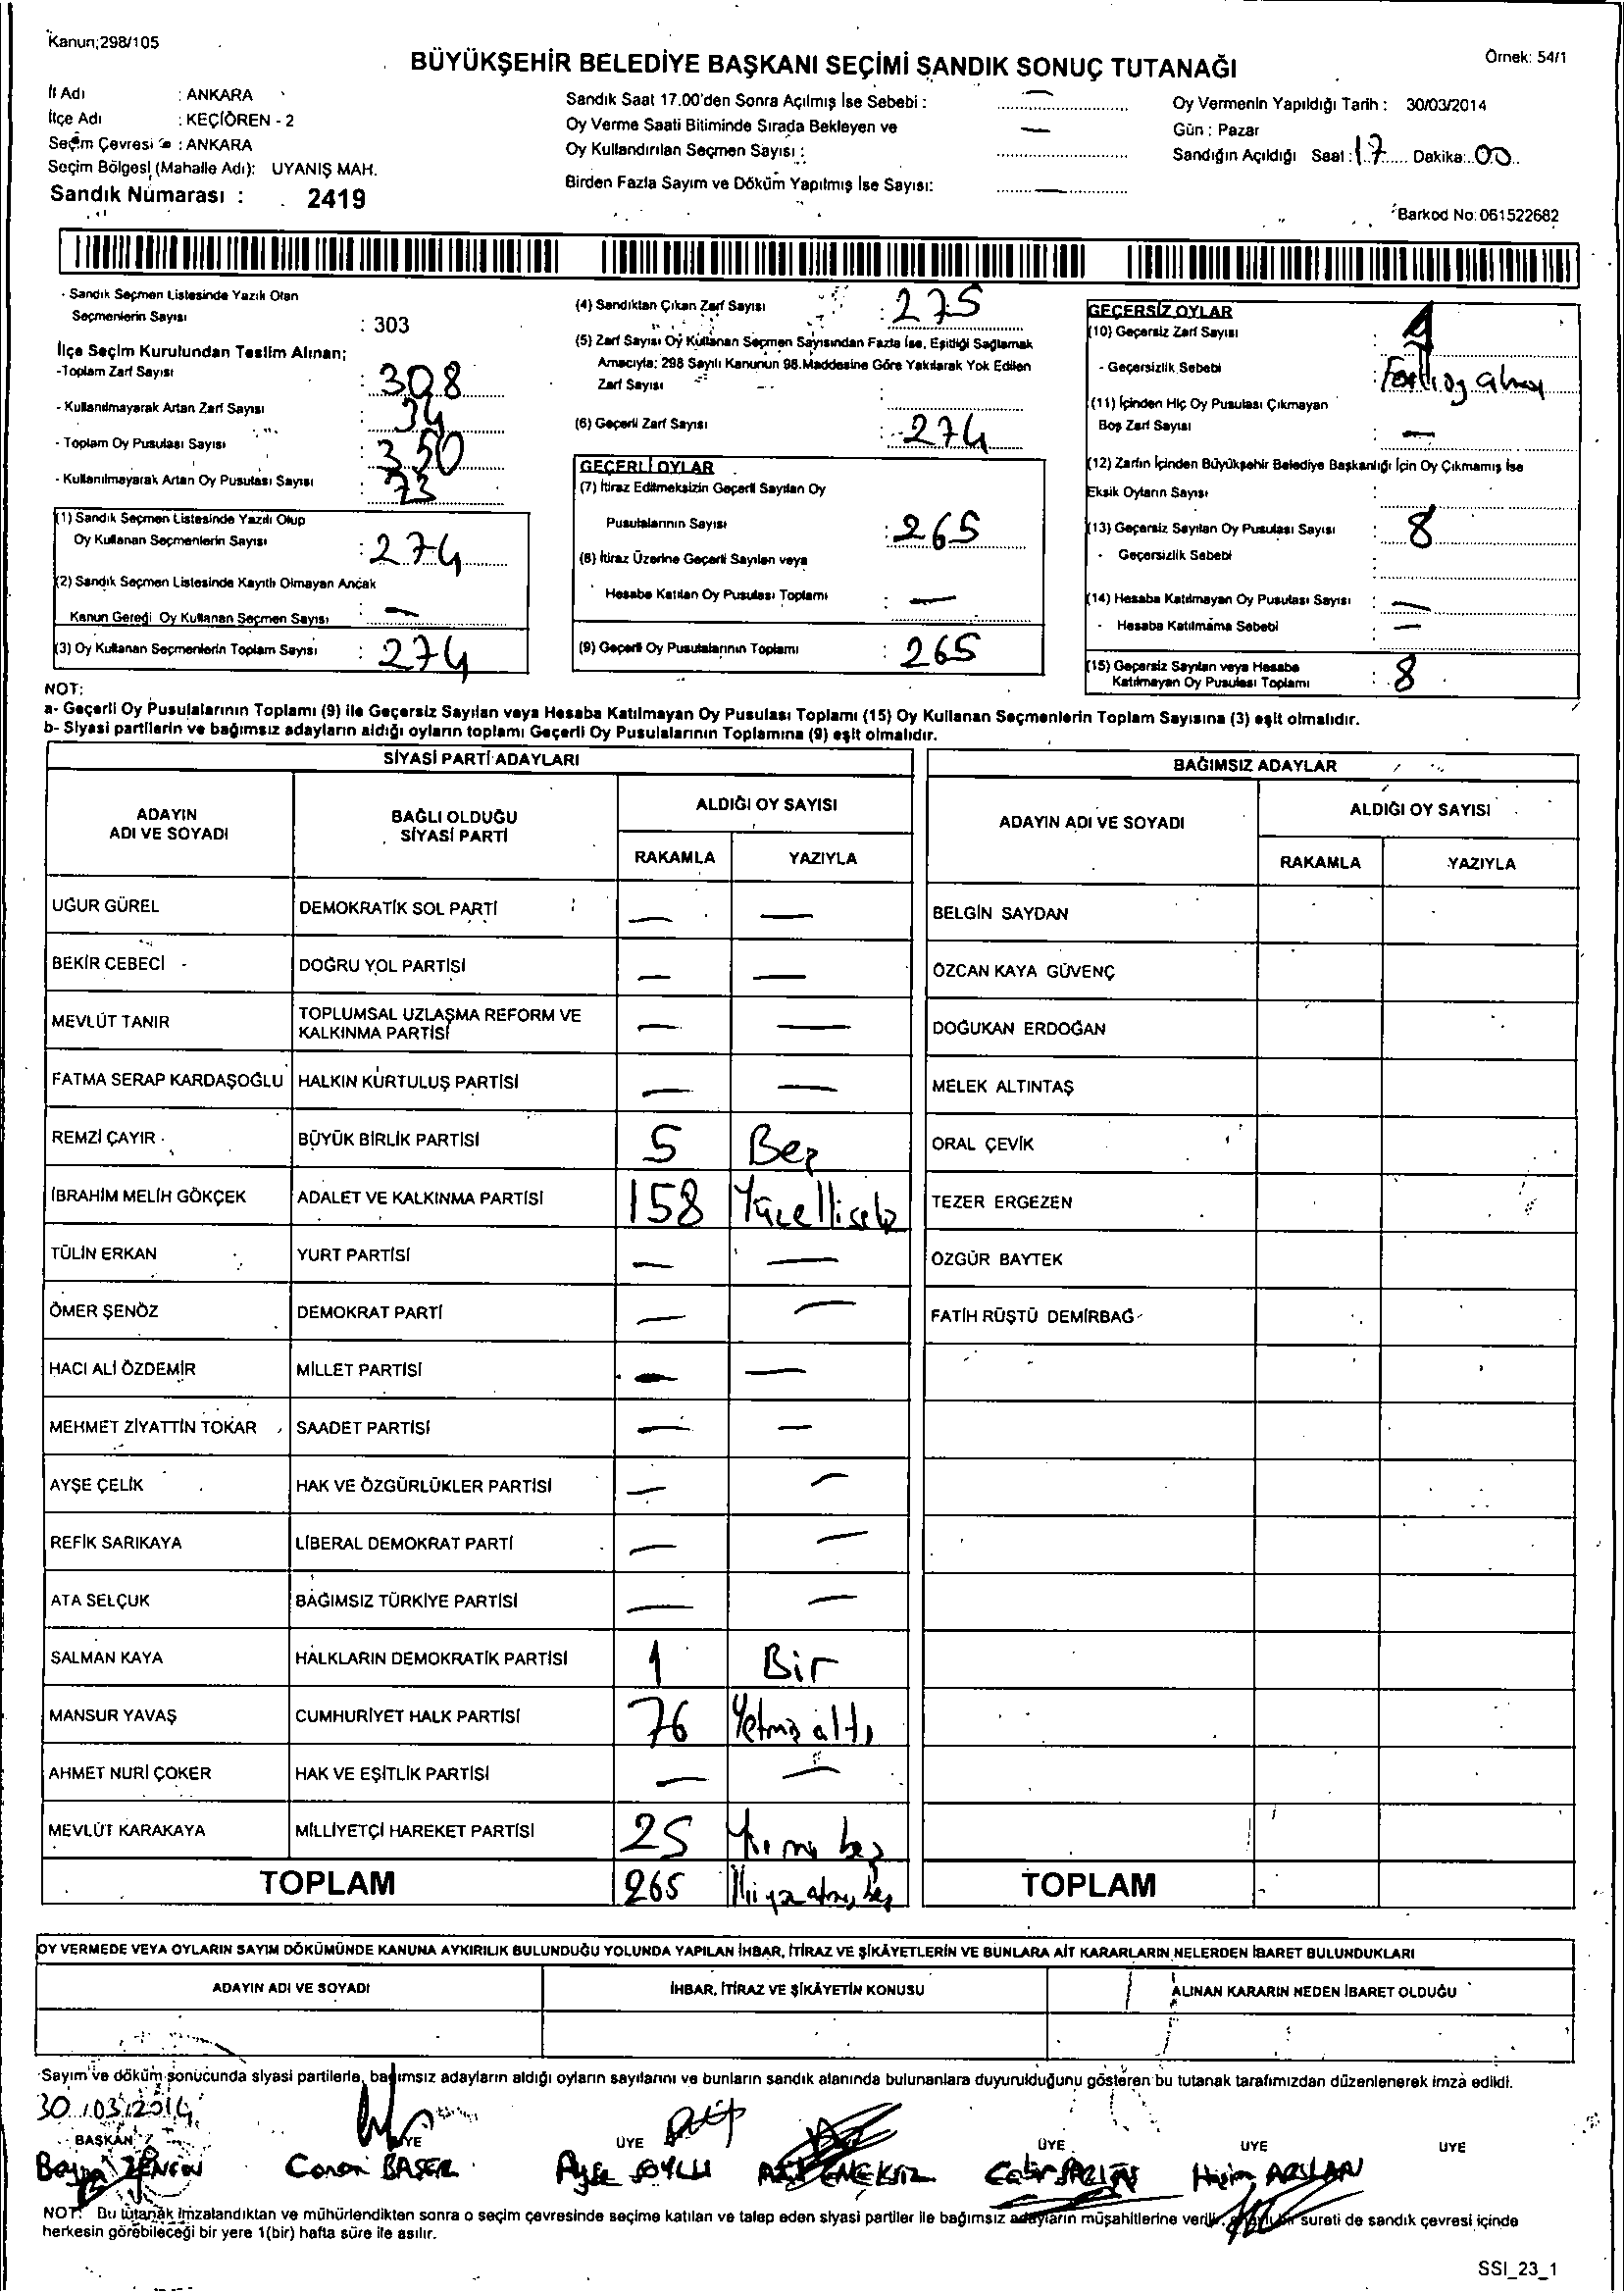 Kanun;298/105
BÜYÜKŞEHİR BELEDİYE BAŞKANI SEÇİMİ SANDIK SONUÇ TUTANAĞI
Örnek: 54/1
İl Adı : ANKARA
İlçe Adı : KEÇİÖREN - 2
Seçim Çevresi : ANKARA
Seçim Bölgesi (Mahalle Adı): UYANIŞ MAH.
Sandık Numarası : 2419
Sandık Saat 17.00'den Sonra Açılmış İse Sebebi : —
Oy Verme Saati Bitiminde Sırada Bekleyen ve
Oy Kullandırılan Seçmen Sayısı : —
Birden Fazla Sayım ve Döküm Yapılmış İse Sayısı: —
Oy Vermenin Yapıldığı Tarih : 30/03/2014
Gün : Pazar
Sandığın Açıldığı Saat : 17 Dakika: 00
Barkod No: 061522682
- Sandık Seçmen Listesinde Yazılı Olan
Seçmenlerin Sayısı : 303
İlçe Seçim Kurulundan Teslim Alınan;
-Toplam Zarf Sayısı : 308
- Kullanılmayarak Artan Zarf Sayısı : 34
- Toplam Oy Pusulası Sayısı : 350
- Kullanılmayarak Artan Oy Pusulası Sayısı : 73
(1) Sandık Seçmen Listesinde Yazılı Olup
Oy Kullanan Seçmenlerin Sayısı : 274
(2) Sandık Seçmen Listesinde Kayıtlı Olmayan Ancak
Kanun Gereği Oy Kullanan Seçmen Sayısı : —
(3) Oy Kullanan Seçmenlerin Toplam Sayısı : 274
(4) Sandıktan Çıkan Zarf Sayısı : 275
(5) Zarf Sayısı Oy Kullanan Seçmen Sayısından Fazla İse, Eşitliği Sağlamak
Amacıyla; 298 Sayılı Kanunun 98.Maddesine Göre Yakılarak Yok Edilen
Zarf Sayısı
(6) Geçerli Zarf Sayısı : 274
GEÇERLİ OYLAR
(7) İtiraz Edilmeksizin Geçerli Sayılan Oy
Pusulalarının Sayısı : 265
(8) İtiraz Üzerine Geçerli Sayılan veya
Hesaba Katılan Oy Pusulası Toplamı : —
(9) Geçerli Oy Pusulalarının Toplamı : 265
GEÇERSİZ OYLAR
(10) Geçersiz Zarf Sayısı : 1
- Geçersizlik Sebebi :
(11) İçinden Hiç Oy Pusulası Çıkmayan
Boş Zarf Sayısı : —
(12) Zarfın İçinden Büyükşehir Belediye Başkanlığı İçin Oy Çıkmamış İse
Eksik Oyların Sayısı :
(13) Geçersiz Sayılan Oy Pusulası Sayısı : 8
- Geçersizlik Sebebi :
(14) Hesaba Katılmayan Oy Pusulası Sayısı : —
- Hesaba Katılmama Sebebi : —
(15) Geçersiz Sayılan veya Hesaba
Katılmayan Oy Pusulası Toplamı : 8
NOT:
a- Geçerli Oy Pusulalarının Toplamı (9) ile Geçersiz Sayılan veya Hesaba Katılmayan Oy Pusulası Toplamı (15) Oy Kullanan Seçmenlerin Toplam Sayısına (3) eşit olmalıdır.
b- Siyasi partilerin ve bağımsız adayların aldığı oyların toplamı Geçerli Oy Pusulalarının Toplamına (9) eşit olmalıdır.
SİYASİ PARTİ ADAYLARI
ADAYIN ADI VE SOYADI BAĞLI OLDUĞU SİYASİ PARTİ ALDIĞI OY SAYISI
RAKAMLA YAZIYLA
UĞUR GÜREL DEMOKRATİK SOL PARTİ — —
BEKİR CEBECİ DOĞRU YOL PARTİSİ — —
MEVLÜT TANIR TOPLUMSAL UZLAŞMA REFORM VE KALKINMA PARTİSİ — —
FATMA SERAP KARDAŞOĞLU HALKIN KURTULUŞ PARTİSİ — —
REMZİ ÇAYIR BÜYÜK BİRLİK PARTİSİ 5 Beş
İBRAHİM MELİH GÖKÇEK ADALET VE KALKINMA PARTİSİ 158 Yüzellisekiz
TÜLİN ERKAN YURT PARTİSİ — —
ÖMER ŞENÖZ DEMOKRAT PARTİ — —
HACI ALİ ÖZDEMİR MİLLET PARTİSİ — —
MEHMET ZİYATTİN TOKAR SAADET PARTİSİ — —
AYŞE ÇELİK HAK VE ÖZGÜRLÜKLER PARTİSİ — —
REFİK SARIKAYA LİBERAL DEMOKRAT PARTİ — —
ATA SELÇUK BAĞIMSIZ TÜRKİYE PARTİSİ — —
SALMAN KAYA HALKLARIN DEMOKRATİK PARTİSİ 1 Bir
MANSUR YAVAŞ CUMHURİYET HALK PARTİSİ 76 Yetmiş altı
AHMET NURİ ÇOKER HAK VE EŞİTLİK PARTİSİ — —
MEVLÜT KARAKAYA MİLLİYETÇİ HAREKET PARTİSİ 25 Yirmi beş
TOPLAM 265 İkiyüz atmış beş
BAĞIMSIZ ADAYLAR
ADAYIN ADI VE SOYADI ALDIĞI OY SAYISI
RAKAMLA YAZIYLA
BELGİN SAYDAN
ÖZCAN KAYA GÜVENÇ
DOĞUKAN ERDOĞAN
MELEK ALTINTAŞ
ORAL ÇEVİK
TEZER ERGEZEN
ÖZGÜR BAYTEK
FATİH RÜŞTÜ DEMİRBAĞ
TOPLAM
OY VERMEDE VEYA OYLARIN SAYIM DÖKÜMÜNDE KANUNA AYKIRILIK BULUNDUĞU YOLUNDA YAPILAN İHBAR, İTİRAZ VE ŞİKÂYETLERİN VE BUNLARA AİT KARARLARIN NELERDEN İBARET BULUNDUKLARI
ADAYIN ADI VE SOYADI İHBAR, İTİRAZ VE ŞİKÂYETİN KONUSU ALINAN KARARIN NEDEN İBARET OLDUĞU
Sayım ve döküm sonucunda siyasi partilerle, bağımsız adayların aldığı oyların sayılarını ve bunların sandık alanında bulunanlara duyurulduğunu gösteren bu tutanak tarafımızdan düzenlenerek imza edildi.
30/03/2014
BAŞKAN ÜYE ÜYE ÜYE ÜYE ÜYE
Caner BAŞER Ayşe SOYLU ARSLAN
NOT: Bu tutanak imzalandıktan ve mühürlendikten sonra o seçim çevresinde seçime katılan ve talep eden siyasi partiler ile bağımsız adayların müşahitlerine verilir, sureti de sandık çevresi içinde
herkesin görebileceği bir yere 1(bir) hafta süre ile asılır.
SSI_23_1